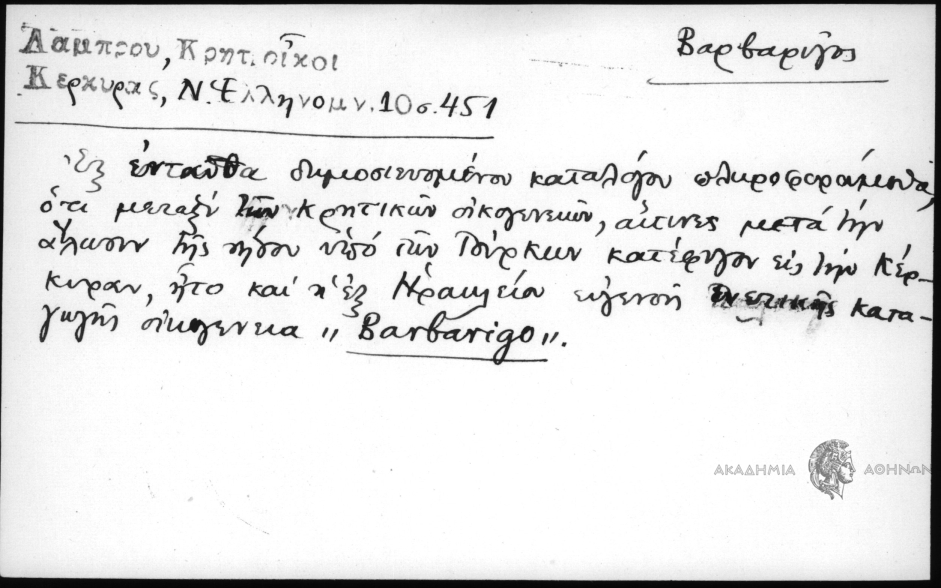 Λάμπρου, Κρητ. οἶκοι
Κερκυρας, Ν. Ἑλληνομν. 10 σ. 451
Βαρβαρῖγος
Ἐξ ἐνταῦθα δημοσιευομένου καταλόγου πληροφορούμεθα,
ὅτι μεταξὺ τῶν Κρητικῶν οἰκογενειῶν, αἵτινες μετά τὴν
ἅλωσιν τῆς νήσου ὑπό τῶν Τούρκων κατέφυγον εἰς τὴν Κέρ-
κυραν, ἦτο καί ἡ ἐξ Ἡρακλείου εὐγενοῦς ἑνετικῆς κατα-
γωγῆς οἰκογένεια „Barbarigo".
ΑΚΑΔΗΜΙΑ ΑΘΗΝΩΝ